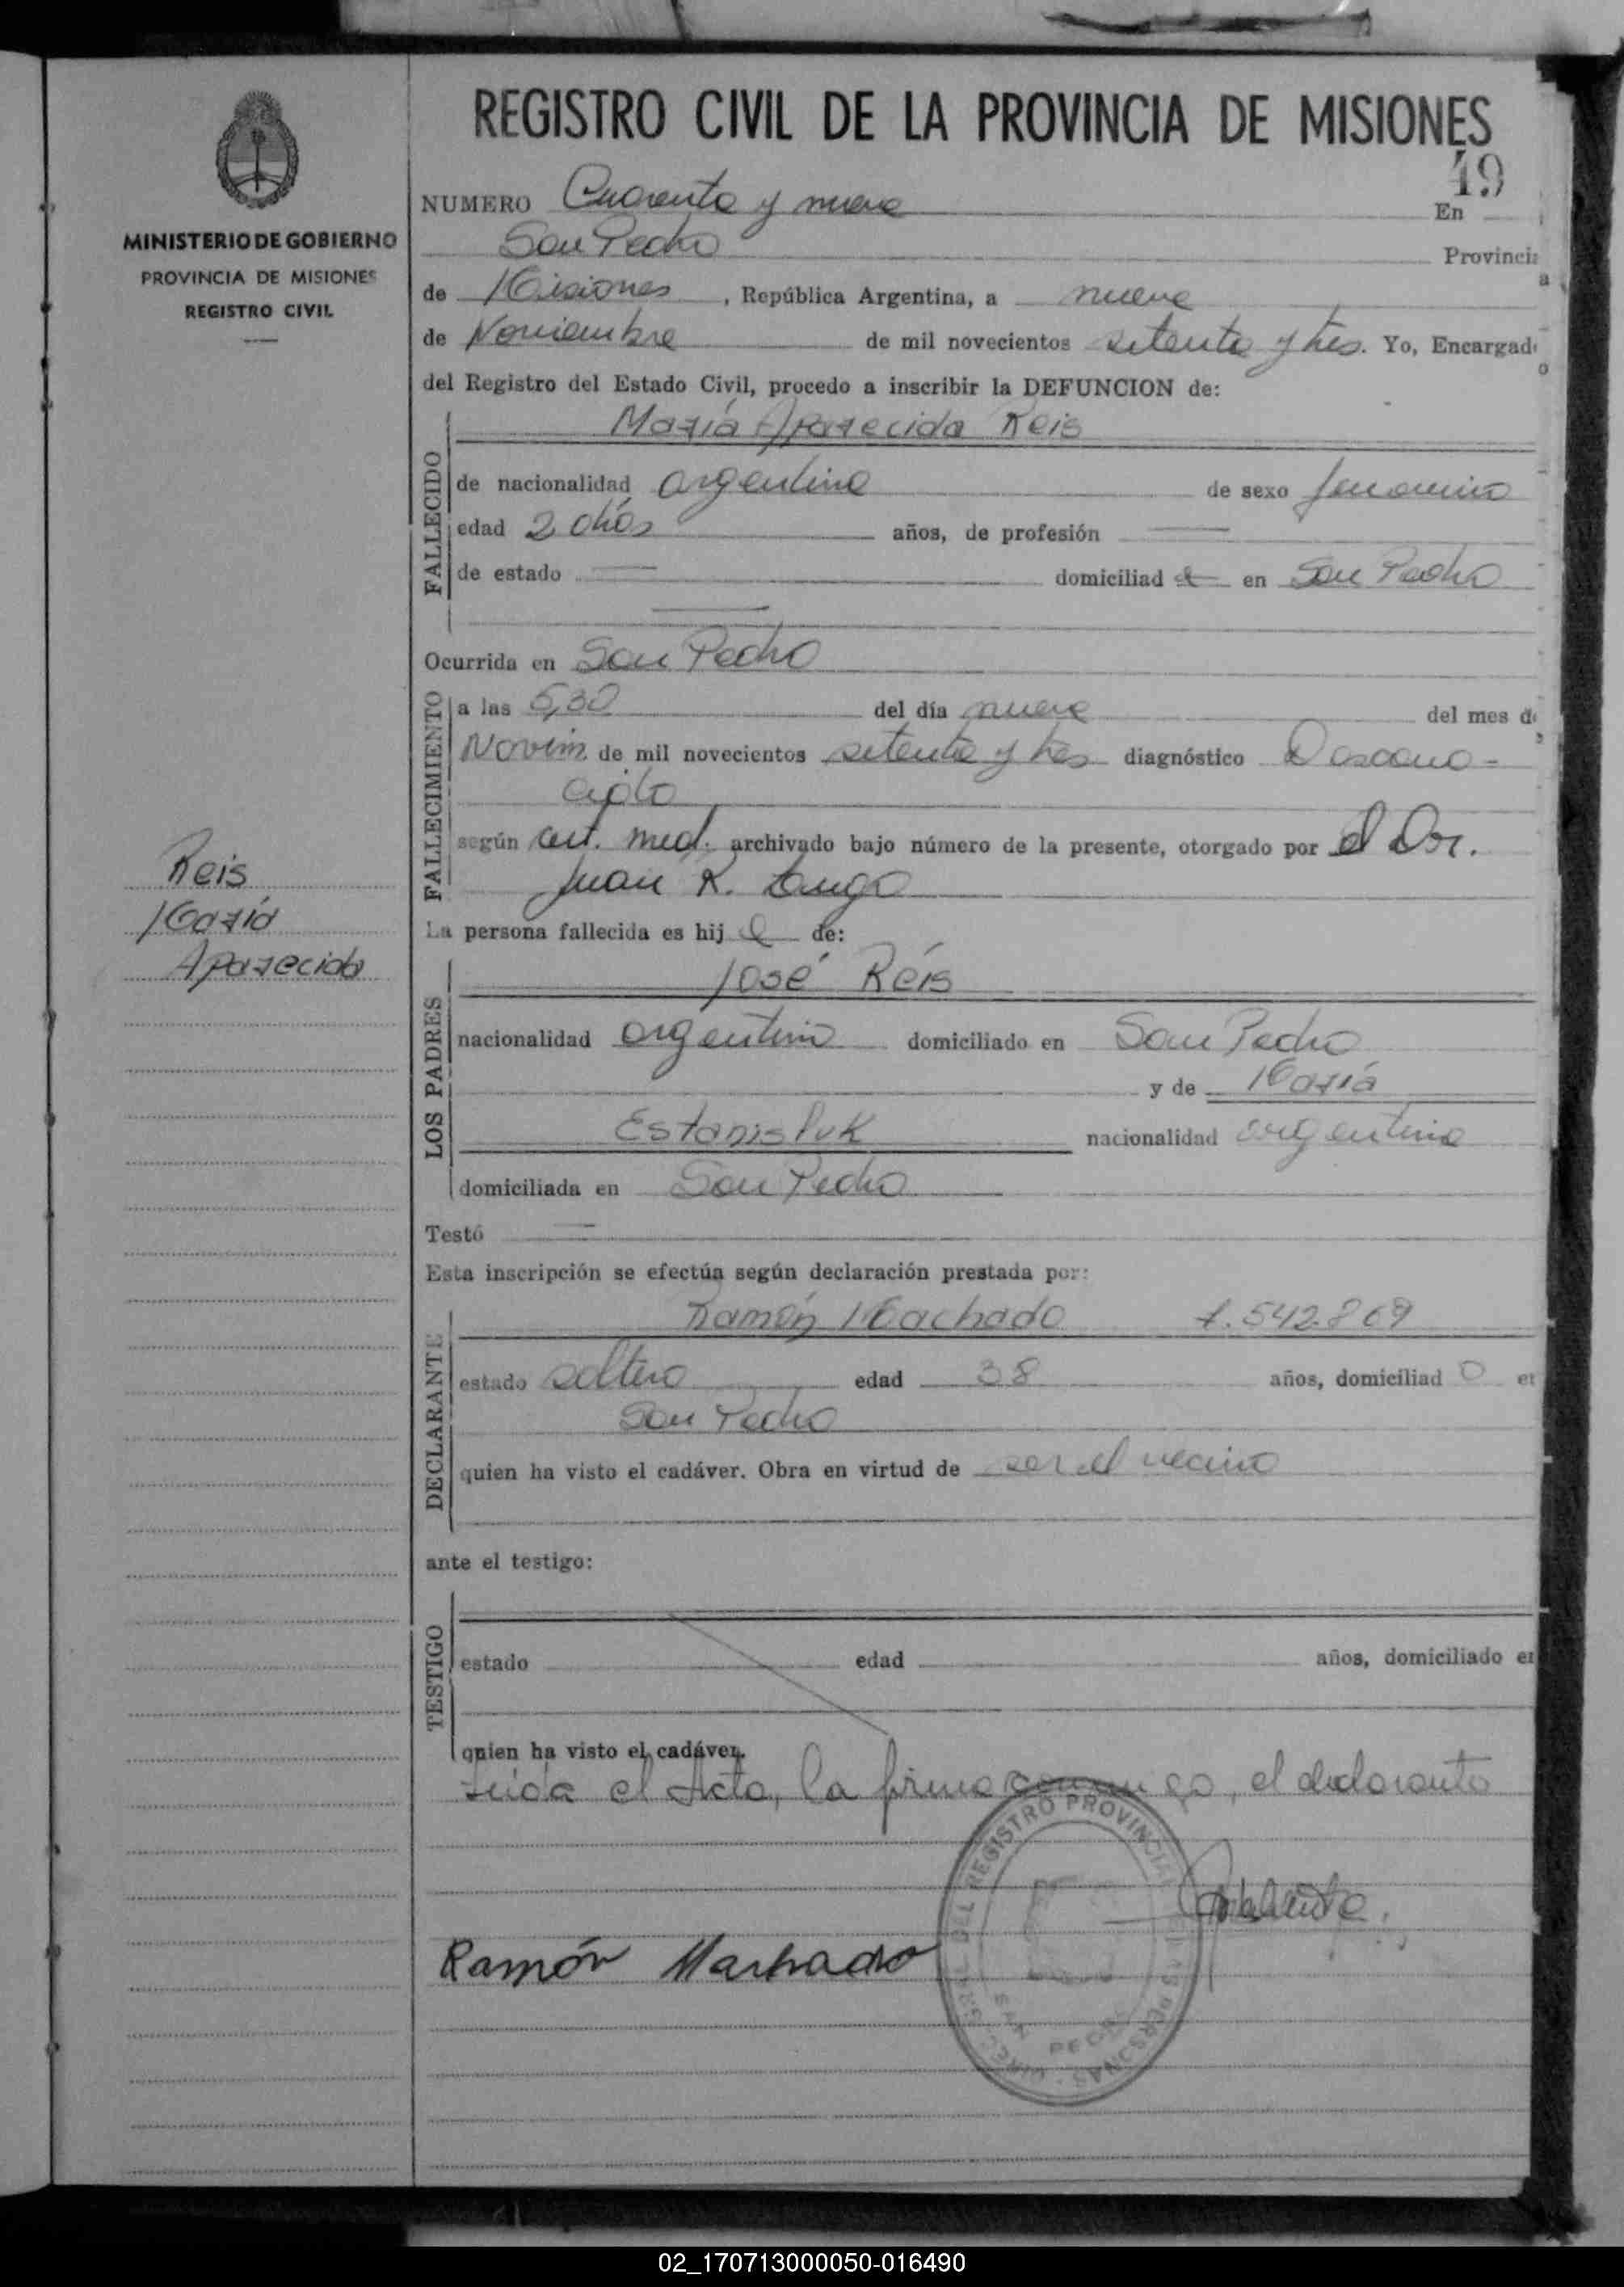 REGISTRO CIVIL DE LA PROVINCIA DE MISIONES
49
MINISTERIO DE GOBIERNO
PROVINCIA DE MISIONES
REGISTRO CIVIL
NUMERO Cuarenta y nueve En
San Pedro Provincia
de Misiones, República Argentina, a nueve
de Noviembre de mil novecientos setenta y tres. Yo, Encargado
del Registro del Estado Civil, procedo a inscribir la DEFUNCION de:
María Aparecida Reis
FALLECIDO
de nacionalidad argentina de sexo femenino
edad 2 años, de profesión
de estado domiciliad a en San Pedro
Ocurrida en San Pedro
FALLECIMIENTO
a las 5,30 del día nueve del mes de
Noviem. de mil novecientos setenta y tres diagnóstico Descono-
cido
según cert. med. archivado bajo número de la presente, otorgado por el Dr.
Juan R.
Reis
María
Aparecida
La persona fallecida es hij a de:
LOS PADRES
José Reis
nacionalidad argentino domiciliado en San Pedro
y de María
Estanisluk nacionalidad argentina
domiciliada en San Pedro
Testó
Esta inscripción se efectúa según declaración prestada por:
DECLARANTE
Ramón Machado 7.542.869
estado soltero edad 38 años, domiciliad o en
San Pedro
quien ha visto el cadáver. Obra en virtud de ser el vecino
ante el testigo:
TESTIGO
estado edad años, domiciliado en
quien ha visto el cadáver.
Leída el Acta, la firma conmigo, el declarante
REGISTRO PROVINCIAL DE LAS PERSONAS
SAN PEDRO
Ramón Machado
02_170713000050-016490